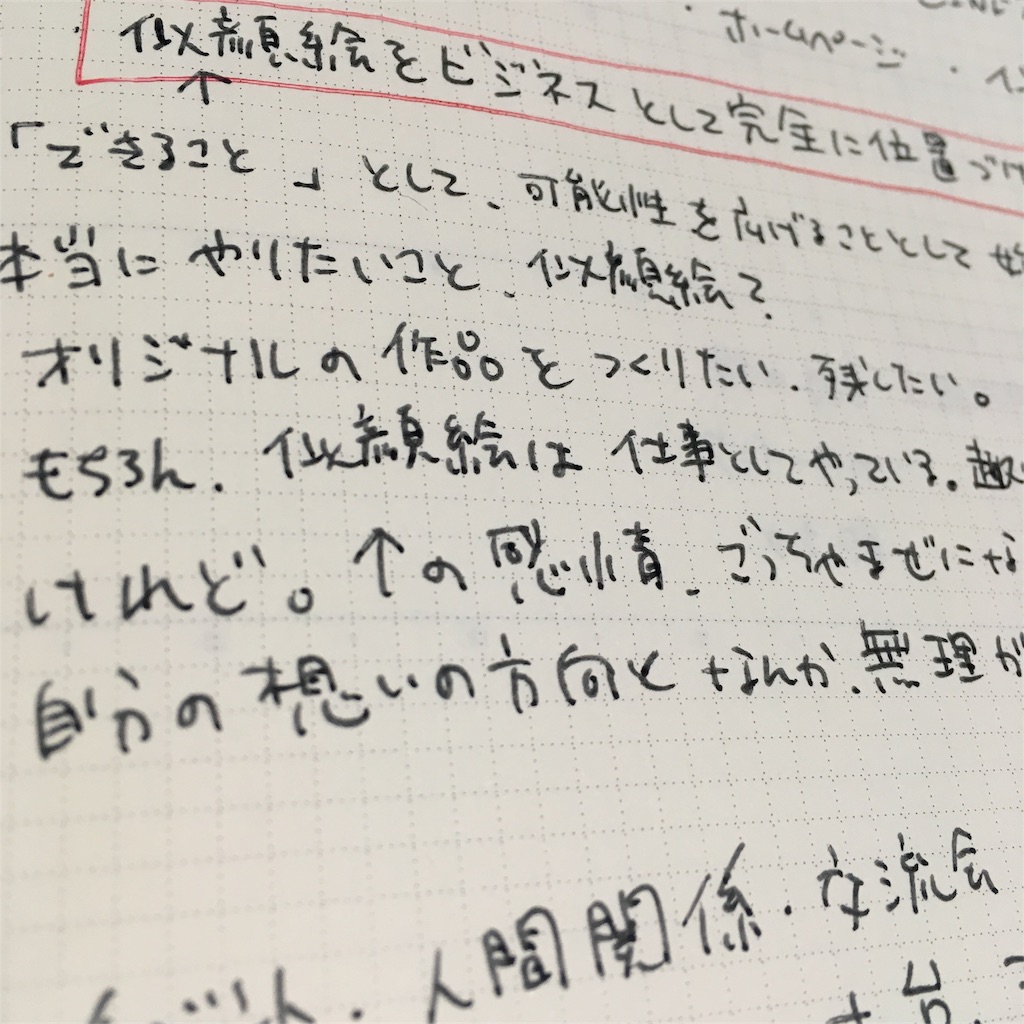 ・ホームページ・
・似顔絵をビジネスとして完全に位置づけ
↑
「できること」として、可能性を広げることとして
本当にやりたいこと、似顔絵で
オリジナルの作品をつくりたい、残したい。
もちろん、似顔絵は仕事としてやっている。趣
けれど。↑の感情、ごっちゃまぜにな
自分の想いの方向となんか、無理が
人間関係・交流会